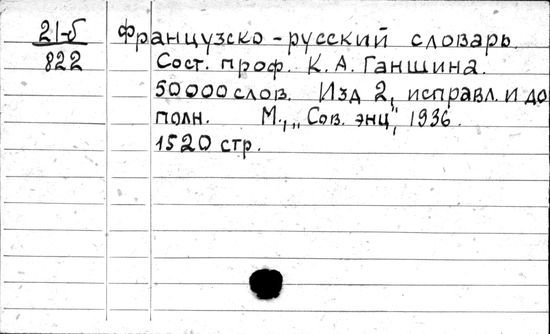 21-б Французско-русский словарь.
822 Сост. проф. К. А. Ганшина.
50000 слов. Изд 2, исправл. и до
полн. М., „Сов. энц", 1936.
1520 стр.